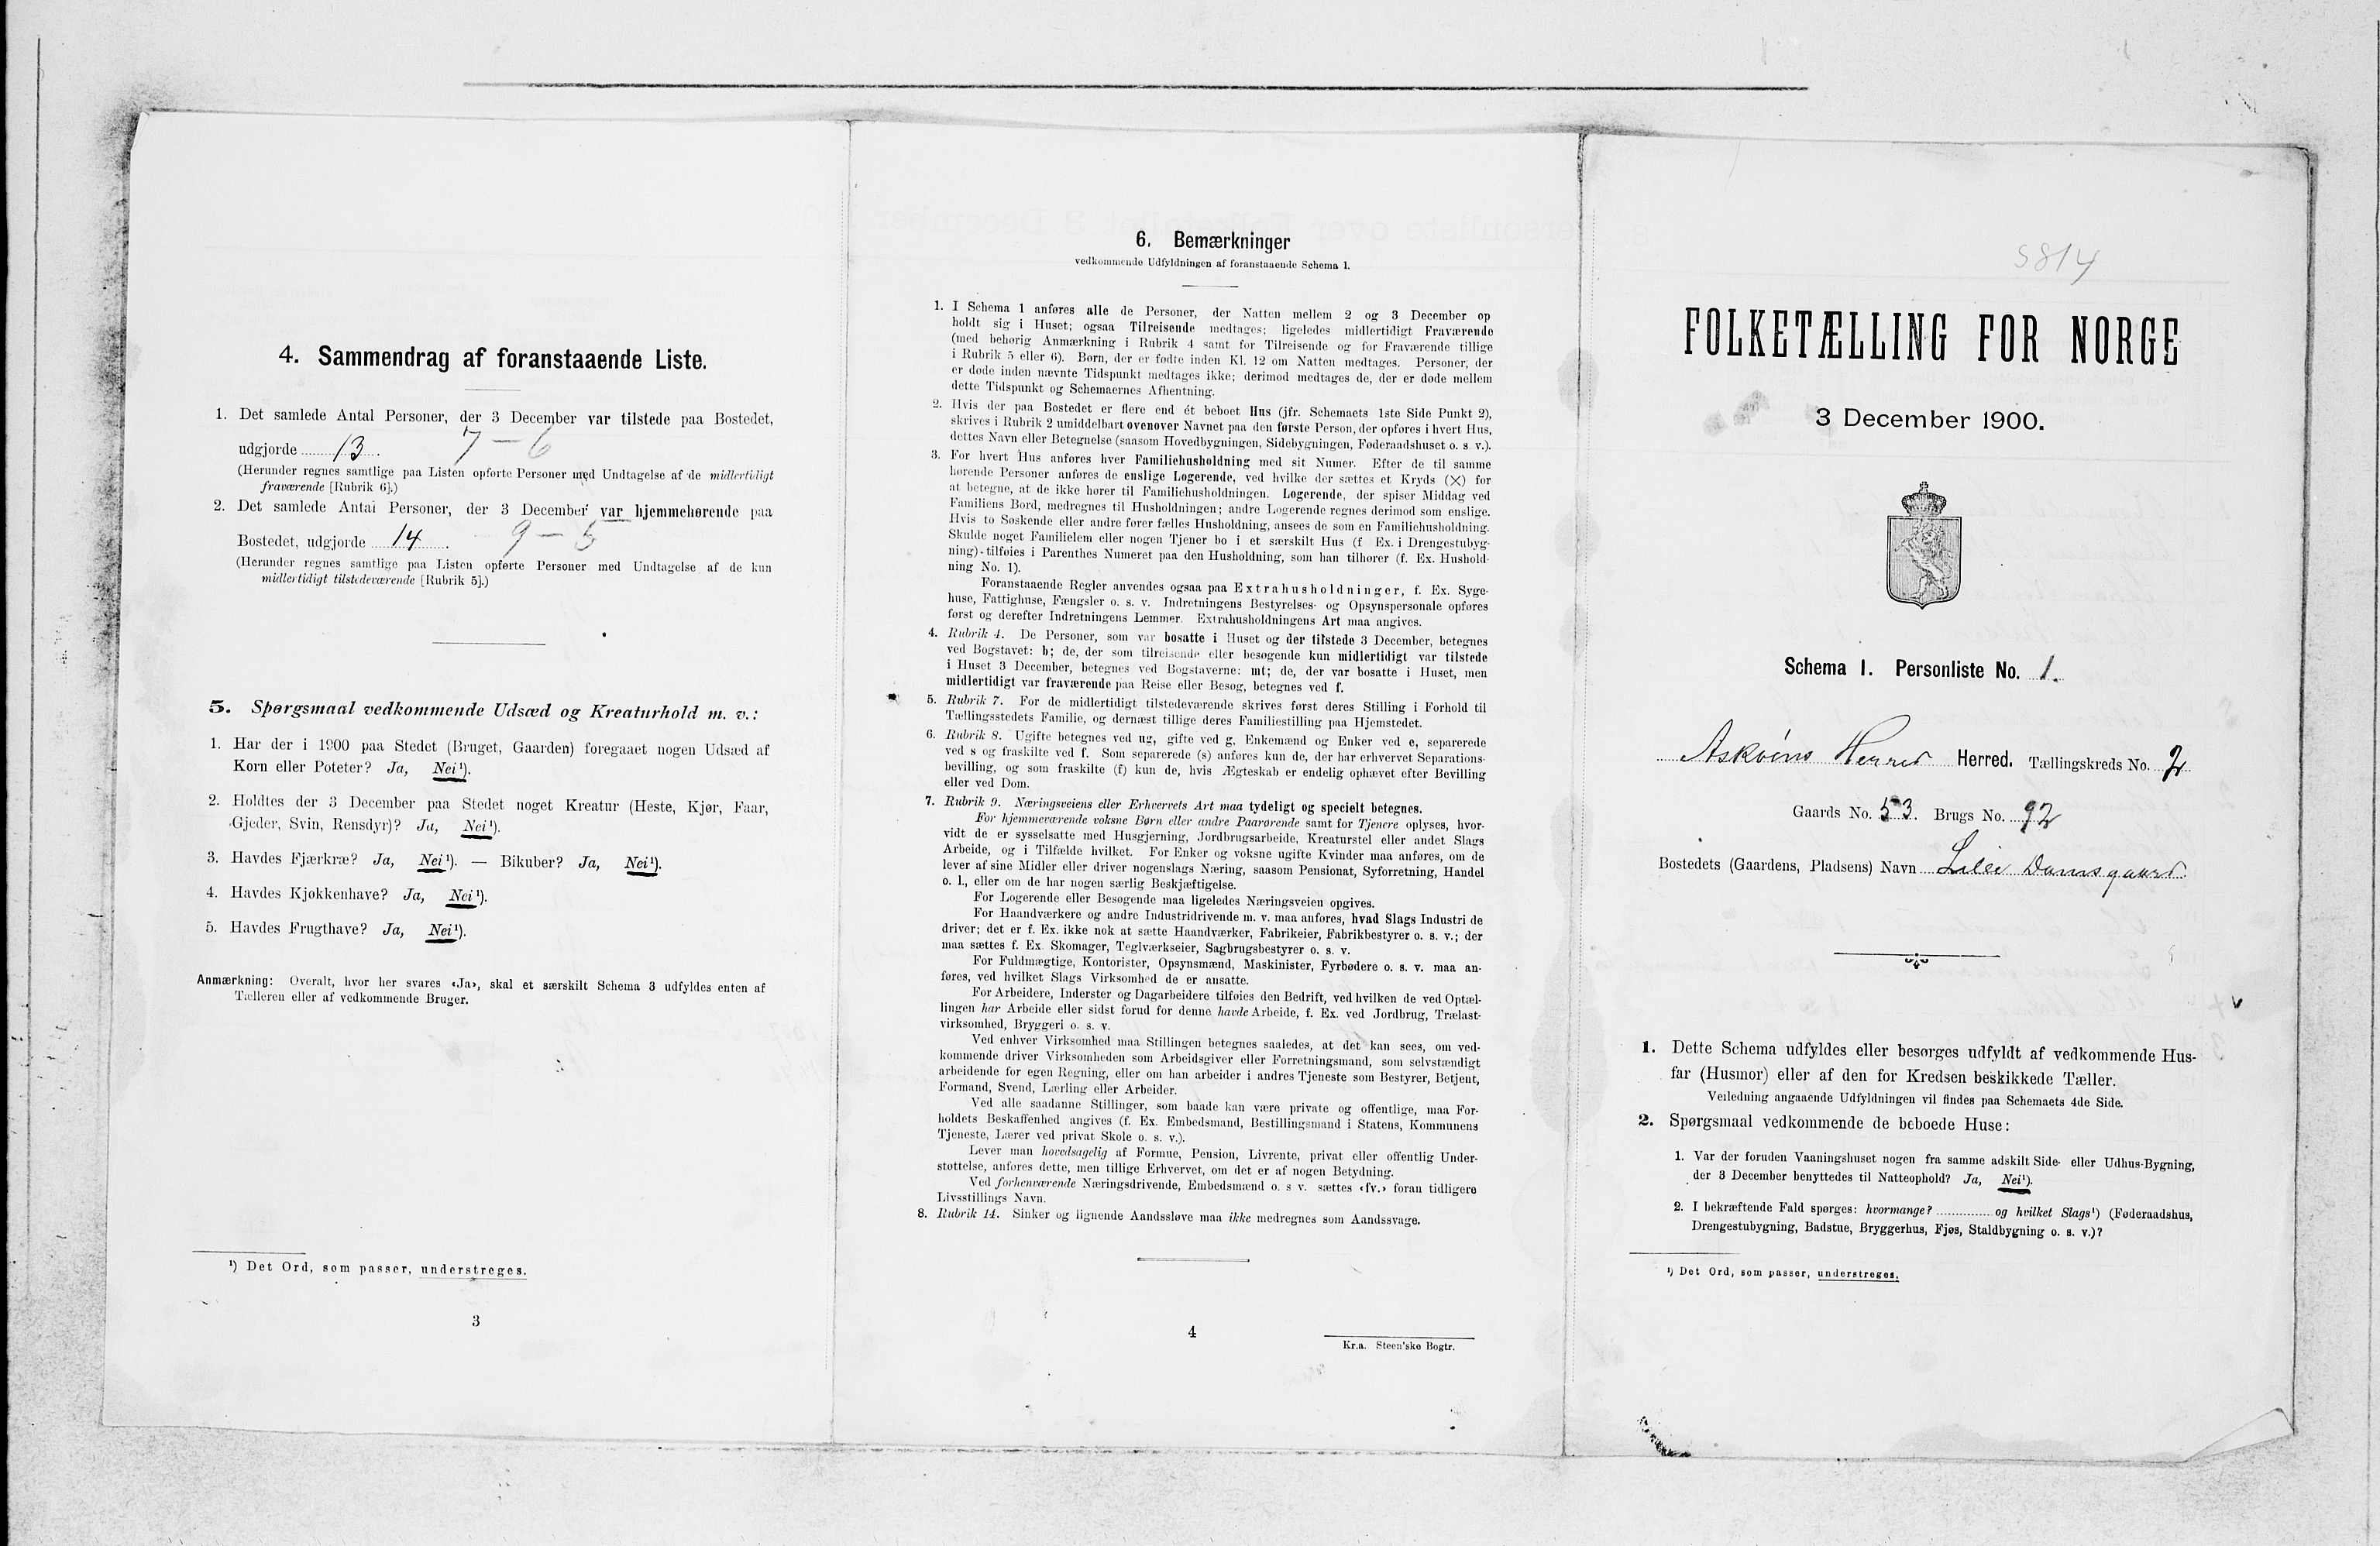 4. Sammendrag af foranstaaende Liste.
1. Det samlede Antal Personer, der 3 December var tilstede paa Bostedet,
udgjorde 13. 7 – 6
(Herunder regnes samtlige paa Listen opførte Personer med Undtagelse af de midlertidigt
fraværende [Rubrik 6].)
2. Det samlede Antal Personer, der 3 December var hjemmehørende paa
Bostedet, udgjorde 14. 9 – 5
(Herunder regnes samtlige paa Listen opførte Personer med Undtagelse af de kun
midlertidigt tilstedeværende [Rubrik 5].)
5. Spørgsmaal vedkommende Udsæd og Kreaturhold m. v.:
1. Har der i 1900 paa Stedet (Bruget, Gaarden) foregaaet nogen Udsæd af
Korn eller Poteter? Ja, Nei¹).
2. Holdtes der 3 December paa Stedet noget Kreatur (Heste, Kjør, Faar,
Gjeder, Svin, Rensdyr)? Ja, Nei¹).
3. Havdes Fjærkræ? Ja, Nei¹). — Bikuber? Ja, Nei¹).
4. Havdes Kjøkkenhave? Ja, Nei¹).
5. Havdes Frugthave? Ja, Nei¹).
Anmærkning: Overalt, hvor her svares «Ja», skal et særskilt Schema 3 udfyldes enten af
Tælleren eller af vedkommende Bruger.
¹) Det Ord, som passer, understreges.
3
6. Bemærkninger
vedkommende Udfyldningen af foranstaaende Schema 1.
1. I Schema 1 anføres alle de Personer, der Natten mellem 2 og 3 December op
holdt sig i Huset; ogsaa Tilreisende medtages; ligeledes midlertidigt Fraværende
(med behørig Anmærkning i Rubrik 4 samt for Tilreisende og for Fraværende tillige
i Rubrik 5 eller 6). Børn, der er fødte inden Kl. 12 om Natten medtages. Personer, der
er døde inden nævnte Tidspunkt medtages ikke; derimod medtages de, der er døde mellem
dette Tidspunkt og Schemaernes Afhentning.
2. Hvis der paa Bostedet er flere end ét beboet Hus (jfr. Schemaets 1ste Side Punkt 2),
skrives i Rubrik 2 umiddelbart ovenover Navnet paa den første Person, der opføres i hvert Hus,
dettes Navn eller Betegnelse (saasom Hovedbygningen, Sidebygningen, Føderaadshuset o. s. v.).
3. For hvert Hus anføres hver Familiehusholdning med sit Numer. Efter de til samme
hørende Personer anføres de enslige Logerende, ved hvilke der sættes et Kryds (×) for
at betegne, at de ikke hører til Familiehusholdningen. Logerende, der spiser Middag ved
Familiens Bord, medregnes til Husholdningen; andre Logerende regnes derimod som enslige.
Hvis to Søskende eller andre fører fælles Husholdning, ansees de som en Familiehusholdning.
Skulde noget Familielem eller nogen Tjener bo i et særskilt Hus (f Ex. i Drengestubyg-
ning)-tilføies i Parenthes Numeret paa den Husholdning, som han tilhører (f. Ex. Hushold-
ning No. 1).
Foranstaaende Regler anvendes ogsaa paa Extrahusholdninger, f. Ex. Syge-
huse, Fattighuse, Fængsler o. s. v. Indretningens Bestyrelses- og Opsynspersonale opføres
først og derefter Indretningens Lemmer. Extrahusholdningens Art maa angives.
4. Rubrik 4. De Personer, som var bosatte i Huset og der tilstede 3 December, betegnes
ved Bogstavet: b; de, der som tilreisende eller besøgende kun midlertidigt var tilstede
i Huset 3 December, betegnes ved Bogstaverne: mt; de, der var bosatte i Huset, men
midlertidigt var fraværende paa Reise eller Besøg, betegnes ved f.
5. Rubrik 7. For de midlertidigt tilstedeværende skrives først deres Stilling i Forhold til
Tællingsstedets Familie, og dernæst tillige deres Familiestilling paa Hjemstedet.
6. Rubrik 8. Ugifte betegnes ved ug, gifte ved g, Enkemænd og Enker ved e, separerede
ved s og fraskilte ved f. Som separerede (s) anføres kun de, der har erhvervet Separations-
bevilling, og som fraskilte (f) kun de, hvis Ægteskab er endelig ophævet efter Bevilling
eller ved Dom.
7. Rubrik 9. Næringsveiens eller Erhvervets Art maa tydeligt og specielt betegnes.
For hjemmeværende voksne Børn eller andre Paarørende samt for Tjenere oplyses, hvor-
vidt de er sysselsatte med Husgjerning, Jordbrugsarbeide, Kreaturstel eller andet Slags
Arbeide, og i Tilfælde hvilket. For Enker og voksne ugifte Kvinder maa anføres, om de
lever af sine Midler eller driver nogenslags Næring, saasom Pensionat, Syforretning, Handel
o. l., eller om de har nogen særlig Beskjæftigelse.
For Logerende eller Besøgende maa ligeledes Næringsveien opgives.
For Haandværkere og andre Industridrivende m. v. maa anføres, hvad Slags Industri de
driver; det er f. Ex. ikke nok at sætte Haandværker, Fabrikeier, Fabrikbestyrer o. s. v.; der
maa sættes f. Ex. Skomager, Teglværkseier, Sagbrugsbestyrer o. s. v.
For Fuldmægtige, Kontorister, Opsynsmænd, Maskinister, Fyrbødere o. s. v. maa an-
føres, ved hvilket Slags Virksomhed de er ansatte.
For Arbeidere, Inderster og Dagarbeidere tilføies den Bedrift, ved hvilken de ved Optæl-
lingen har Arbeide eller sidst forud for denne havde Arbeide, f. Ex. ved Jordbrug, Trælast-
virksomhed, Bryggeri o. s. v.
Ved enhver Virksomhed maa Stillingen betegnes saaledes, at det kan sees, om ved-
kommende driver Virksomheden som Arbeidsgiver eller Forretningsmand, som selvstændigt
arbeidende for egen Regning, eller om han arbeider i andres Tjeneste som Bestyrer, Betjent,
Formand, Svend, Lærling eller Arbeider.
Ved alle saadanne Stillinger, som baade kan være private og offentlige, maa For-
holdets Beskaffenhed angives (f. Ex. Embedsmand, Bestillingsmand i Statens, Kommunens
Tjeneste, Lærer ved privat Skole o. s. v.).
Lever man hovedsagelig af Formue, Pension, Livrente, privat eller offentlig Under-
støttelse, anføres dette, men tillige Erhvervet, om det er af nogen Betydning.
Ved forhenværende Næringsdrivende, Embedsmænd o. s v. sættes «fv.» foran tidligere
Livsstillings Navn.
8. Rubrik 14. Sinker og lignende Aandssløve maa ikke medregnes som Aandssvage.
4
Kr.a. Steen'ske Bogtr.
5814
FOLKETÆLLING FOR NORGE
3 December 1900.
Schema 1. Personliste No. 1.
Askøens Herred Herred. Tællingskreds No. 2
Gaards No. 53. Brugs No. 92
Bostedets (Gaardens, Pladsens) Navn Lille Damsgaard.
1. Dette Schema udfyldes eller besørges udfyldt af vedkommende Hus-
far (Husmor) eller af den for Kredsen beskikkede Tæller.
Veiledning angaaende Udfyldningen vil findes paa Schemaets 4de Side.
2. Spørgsmaal vedkommende de beboede Huse:
1. Var der foruden Vaaningshuset nogen fra samme adskilt Side- eller Udhus-Bygning,
der 3 December benyttedes til Natteophold? Ja, Nei¹).
2. I bekræftende Fald spørges: hvormange? ............ og hvilket Slags¹) (Føderaadshus,
Drengestubygning, Badstue, Bryggerhus, Fjøs, Staldbygning o. s. v.)?
¹) Det Ord, som passer, understreges.